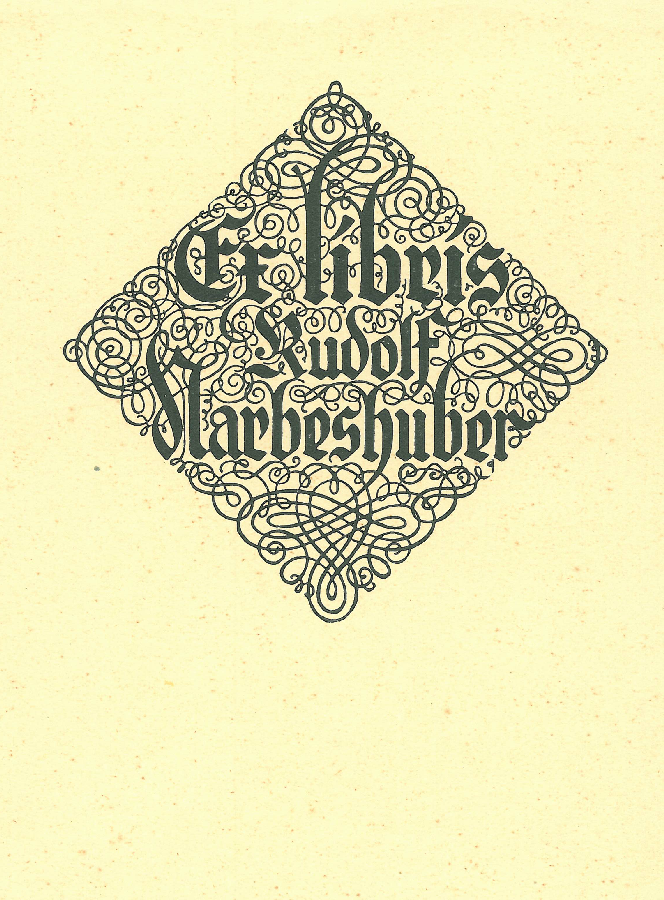 Ex libris
Rudolf
Narbeshuber